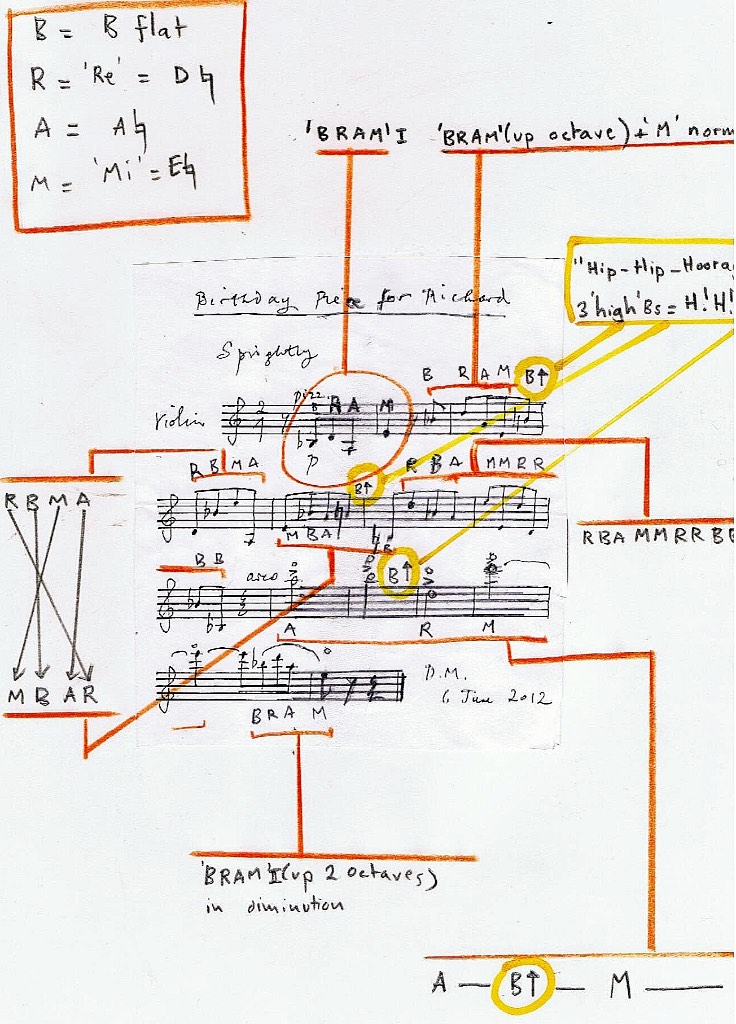 B = B flat
R = 'Re' = D♮
A = A♮
M = 'Mi' = E♮
'BRAM' I
'BRAM' (up octave) + 'M' norm
"Hip-Hip-Hoora
3 'high' Bs = H! H!
Birthday Piece for Richard
Sprightly
B R A M B↑
pizz.
B R A M
Violin
p
R B M A
B↑
R B A M M R R
R B M A
M B A
R B A M M R R B B
R
B B
arco
B↑
A R M
M B A R
D.M.
6 June 2012
B R A M
'BRAM' I (up 2 octaves)
in diminution
A — B↑ — M —